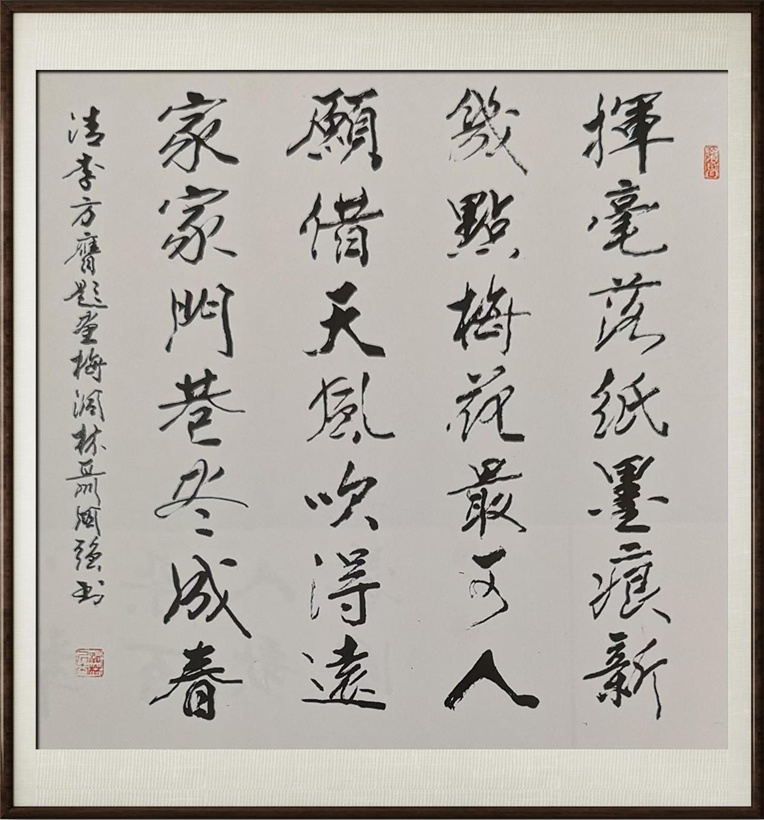 揮毫落紙墨痕新
幾點梅花最可人
願借天風吹得遠
家家門巷尽成春
清李方膺題畫梅